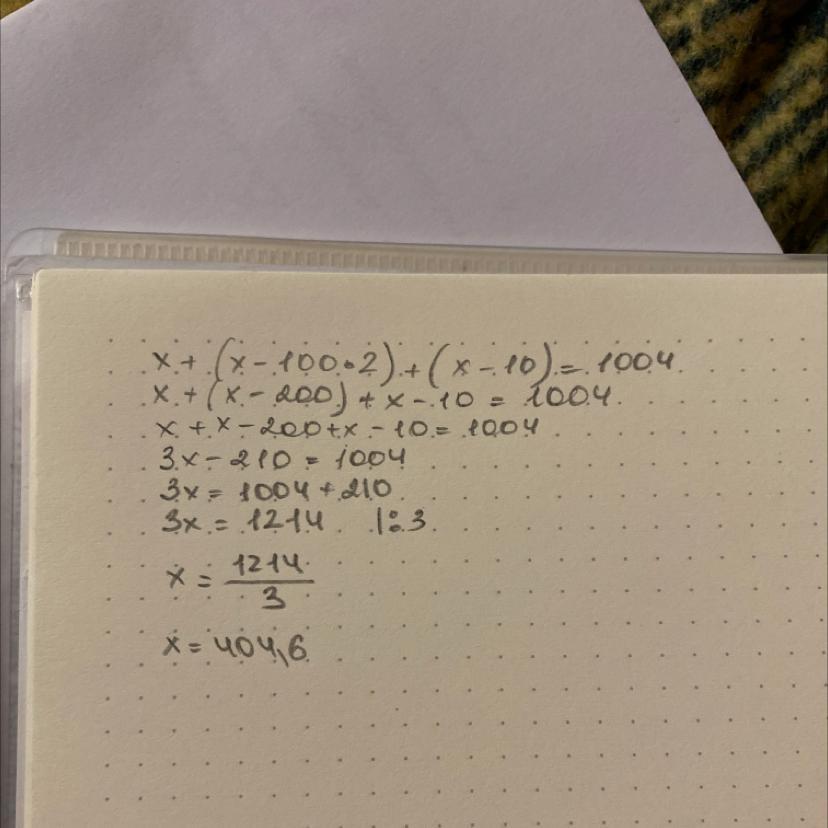 x + (x - 100 • 2) + (x - 10) = 1004
x + (x - 200) + x - 10 = 1004
x + x - 200 + x - 10 = 1004
3x - 210 = 1004
3x = 1004 + 210
3x = 1214 |:3
x = 1214/3
x = 404,6